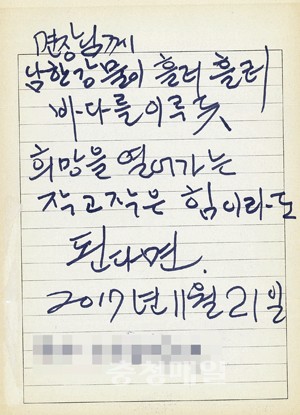 면장님께
남한강물이 흘러 흘러
바다를 이루듯
희망을 열어가는
작고 작은 힘이라도
된다면.
2017년 11월 21일
충청매일